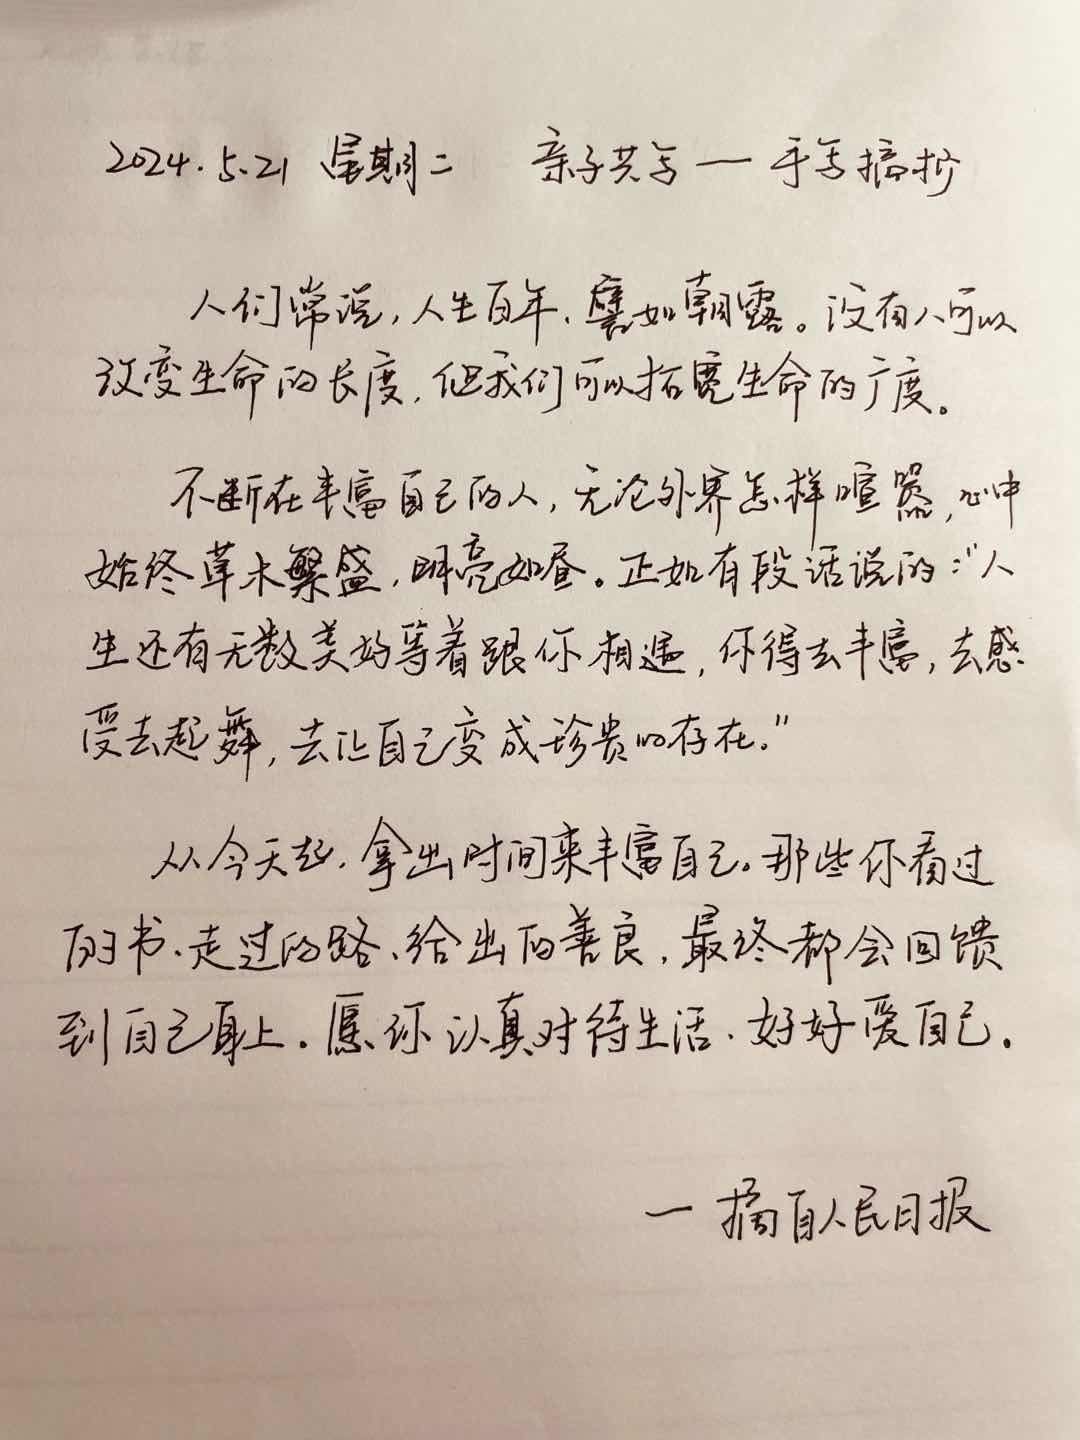 2024.5.21 星期二 亲子共写一手写摘抄
人们常说,人生百年、譬如朝露。没有人可以
改变生命的长度,但我们可以拓宽生命的广度。
不断在丰富自己的人,无论外界怎样喧嚣,心中
始终草木繁盛,明亮如昼。正如有段话说的:"人
生还有无数美好等着跟你相遇,你得去丰富,去感
受去起舞,去让自己变成珍贵的存在."
从今天起、拿出时间来丰富自己。那些你看过
的书、走过的路、给出的善良,最终都会回馈
到自己身上.愿你认真对待生活、好好爱自己.
一摘自人民日报